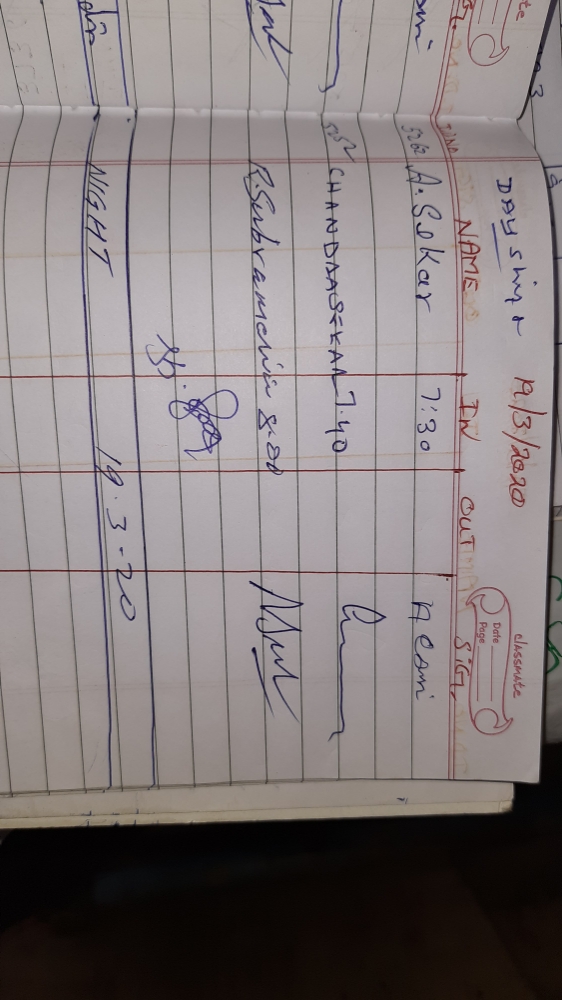 classmate
Date
Page
DAY shift 19/3/2020
NAME IN OUT SIG.
5262 A. Sekar 7:30
5252 CHANDRASEKAR 7.40
R. Subramani 8.00
NIGHT 19.3-20